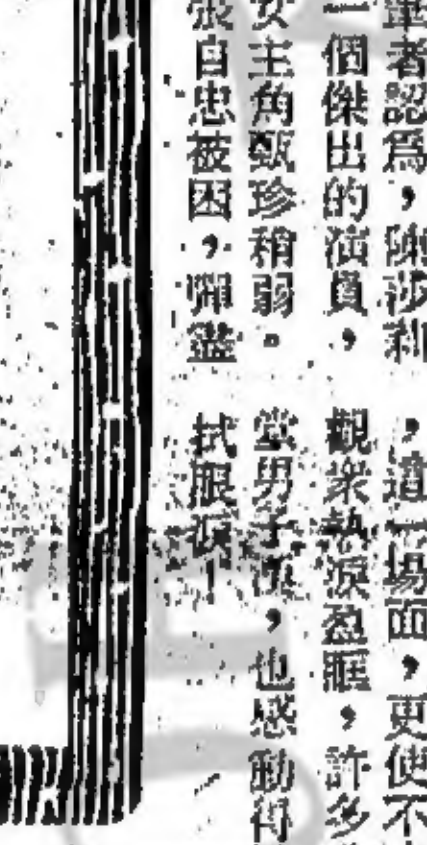 筆者認爲，陳莎莉
一個傑出的演員，
女主角甄珍稍弱。
張自忠被困，彈盡
，這一場面，更使不
觀衆熱淚盈眶，許多
堂男子漢，也感動得
拭眼淚！